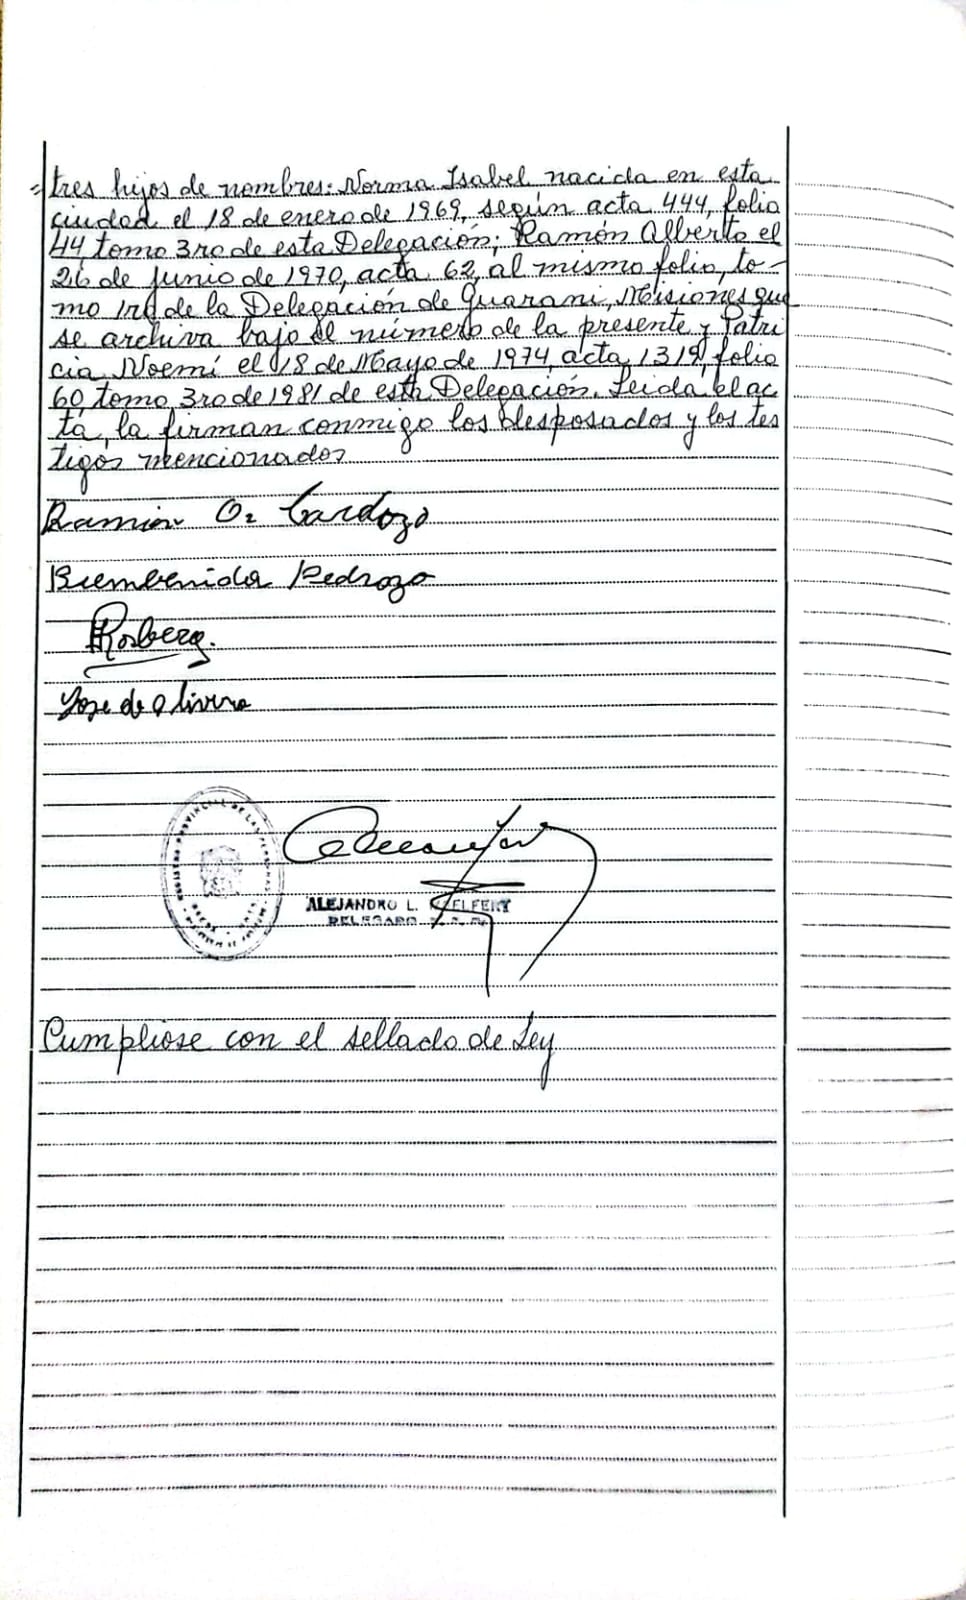 =tres hijos de nombres: Norma Isabel nacida en esta
ciudad el 18 de enero de 1969, según acta 444, folio
44 tomo 3ro de esta Delegación; Ramón Alberto el
26 de Junio de 1970, acta 62, al mismo folio, to-
mo 1ro de la Delegación de Guaraní, Misiones que
se archiva bajo el número de la presente y Patri
cia Noemí el 18 de Mayo de 1974, acta 1319, folio
60, tomo 3ro de 1981 de esta Delegación. Leida el ac
ta, la firman conmigo los desposados y los tes
tigos mencionados
Ramón O. Cardozo
Biembenida Pedrozo
Rosberg.
Jose de Olivera
REGISTRO PROVINCIAL DE LAS PERSONAS
ALEJANDRO L.
DELEGADO
Cumpliose con el sellado de Ley